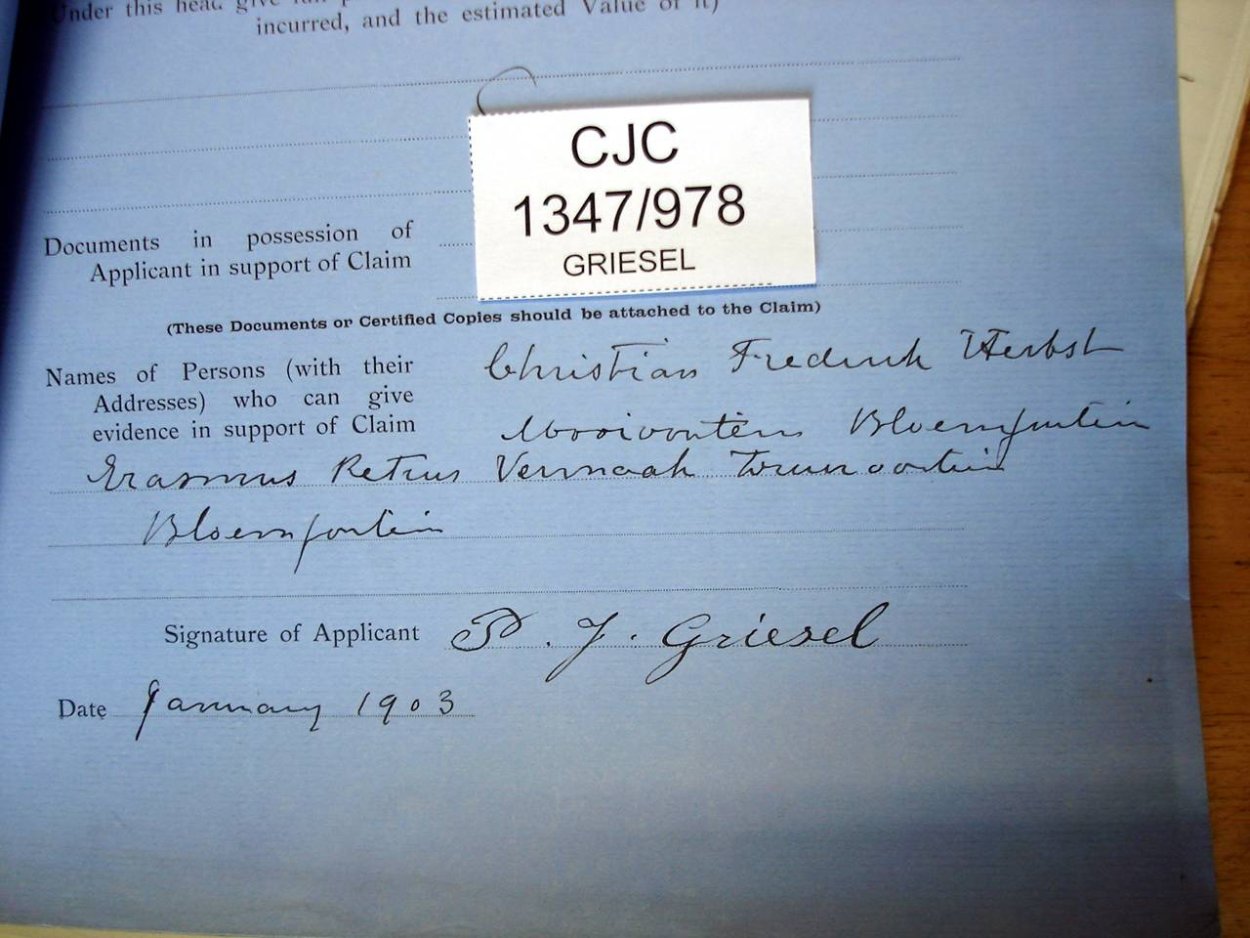 Under this head give
incurred, and the estimated Value of it)
CJC
1347/978
GRIESEL
Documents in possession of
Applicant in support of Claim
(These Documents or Certified Copies should be attached to the Claim)
Names of Persons (with their
Addresses) who can give
evidence in support of Claim
Christian Frederick Herbst
Mooifontein Bloemfontein
Erasmus Petrus Vermaak
Bloemfontein
Signature of Applicant P. J. Griesel
Date January 1903